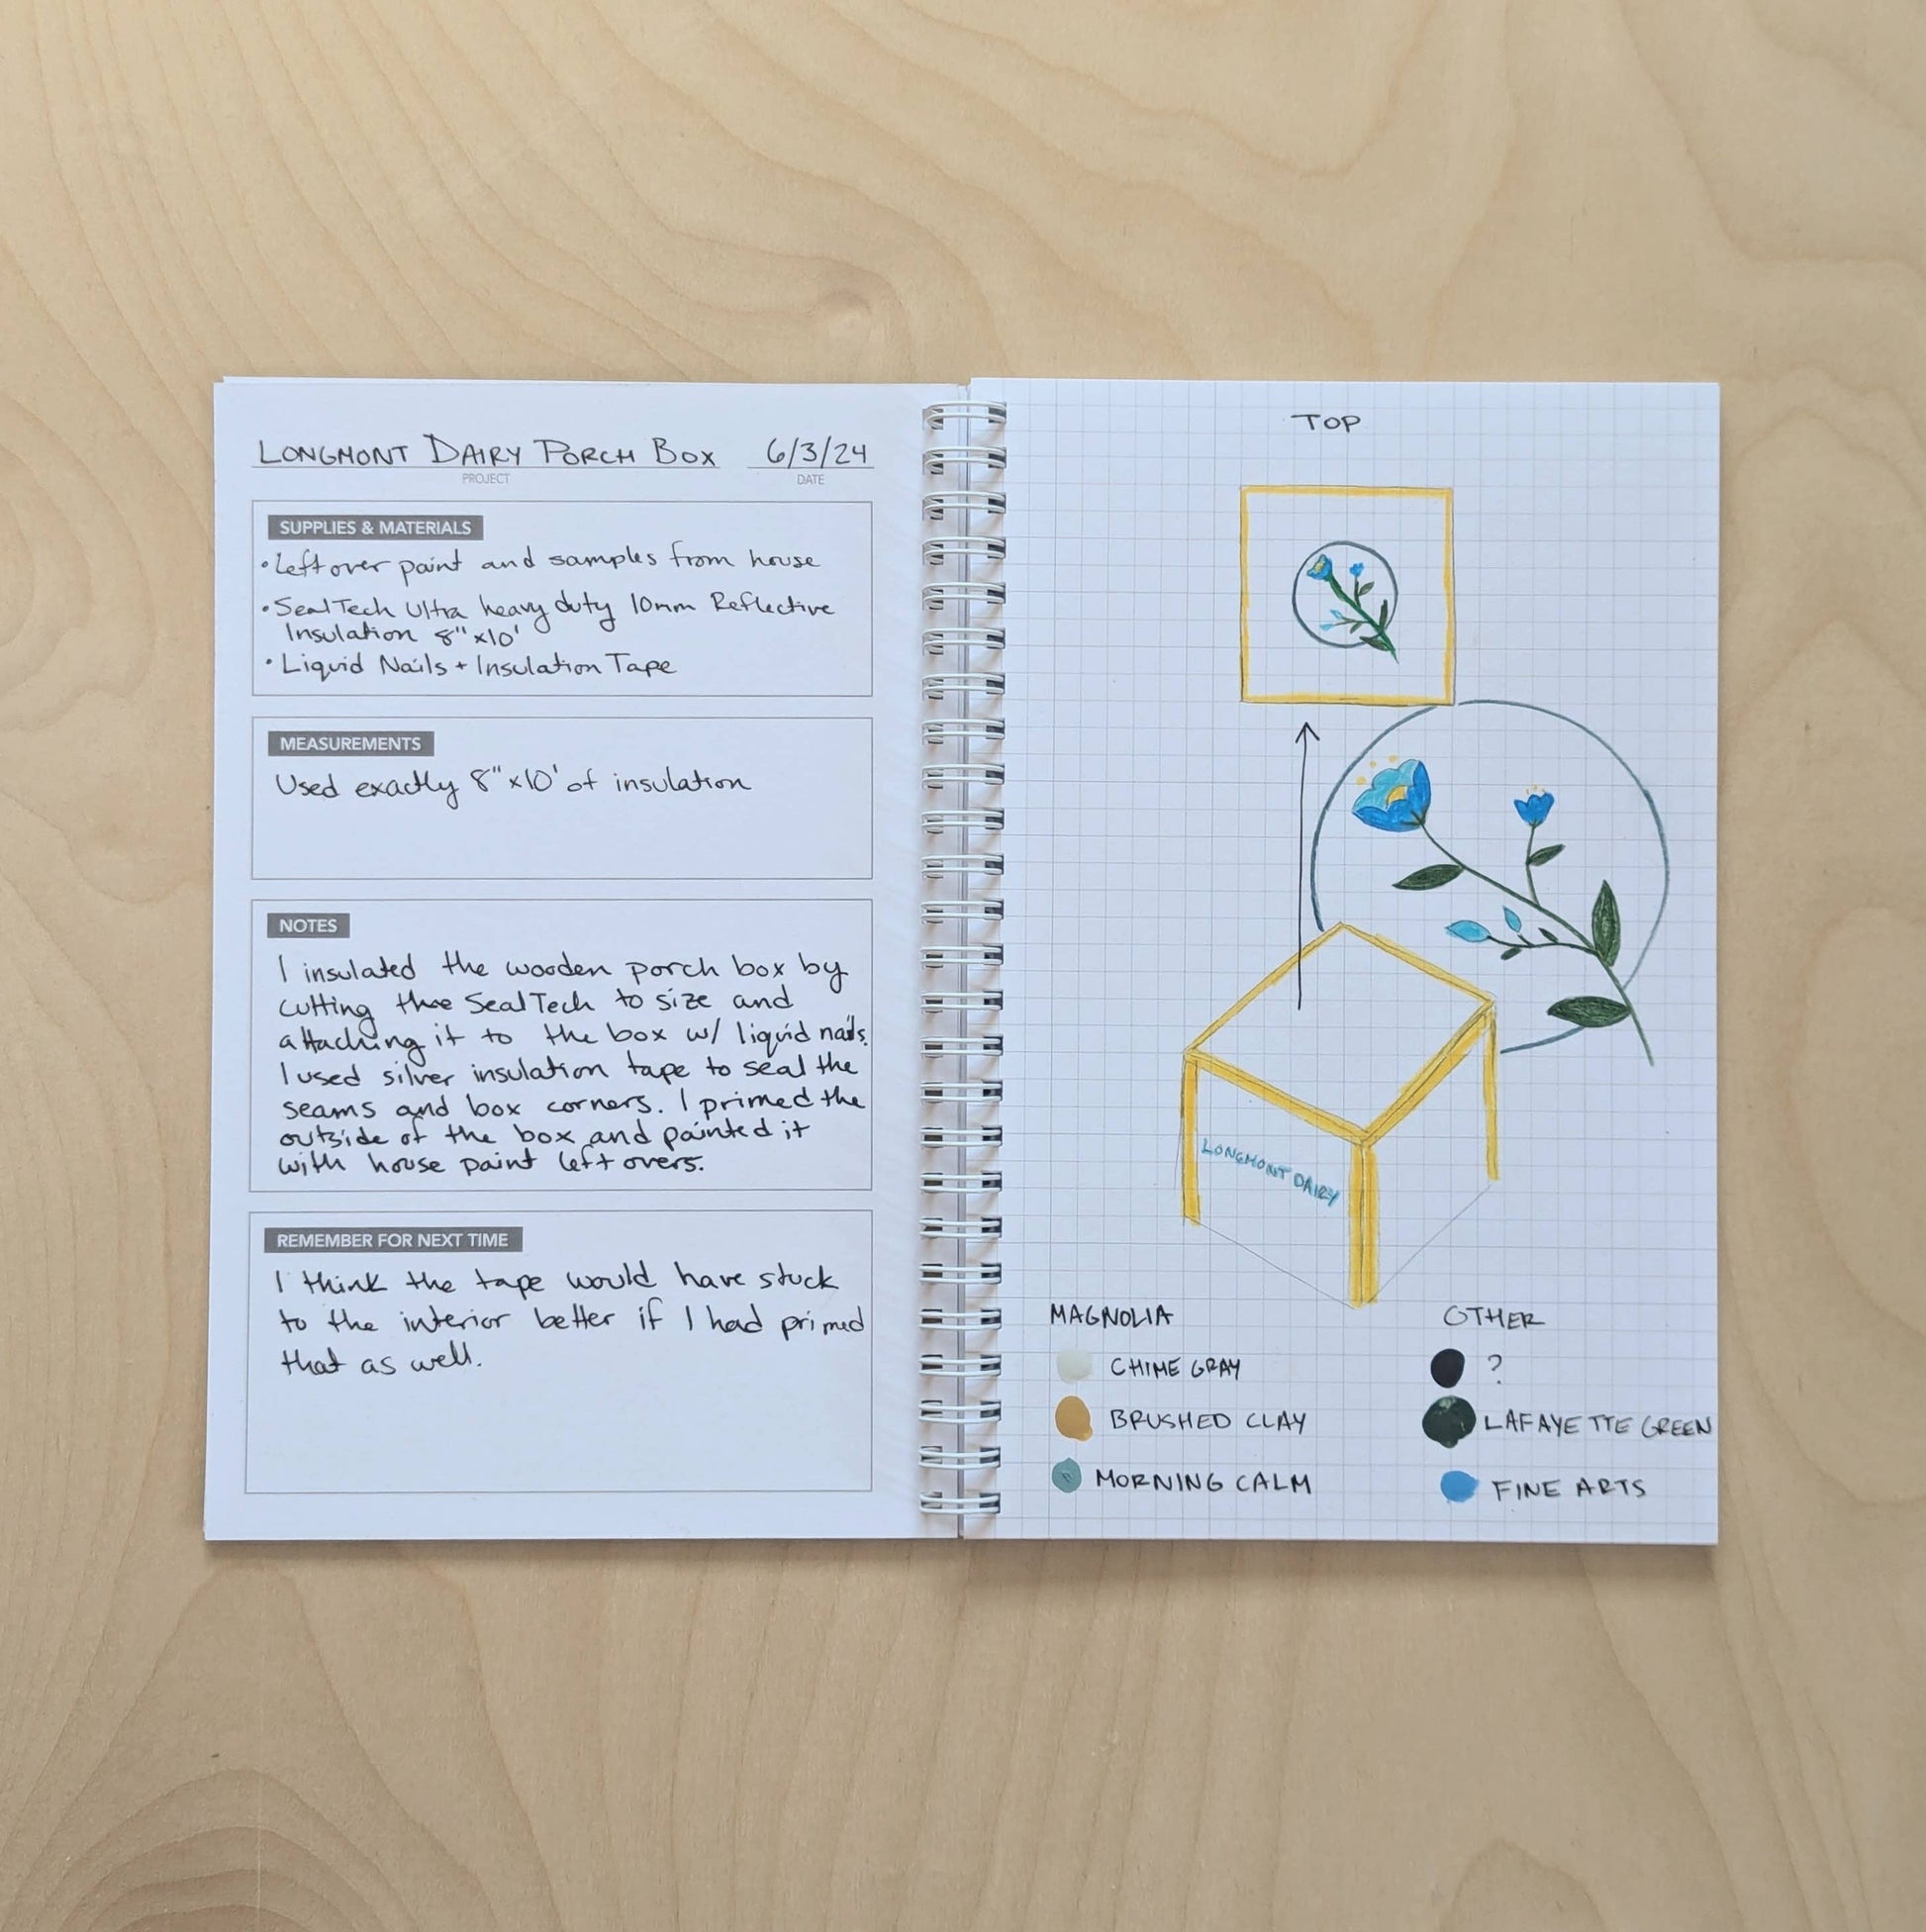 LONGMONT DAIRY PORCH BOX 6/3/24
PROJECT DATE
SUPPLIES & MATERIALS
• Leftover paint and samples from house
• SealTech Ultra heavy duty 10mm Reflective
Insulation 8"x10'
• Liquid Nails + Insulation Tape
MEASUREMENTS
Used exactly 8"x10' of insulation
NOTES
I insulated the wooden porch box by
cutting the SealTech to size and
attaching it to the box w/ liquid nails.
I used silver insulation tape to seal the
seams and box corners. I primed the
outside of the box and painted it
with house paint leftovers.
REMEMBER FOR NEXT TIME
I think the tape would have stuck
to the interior better if I had primed
that as well.
TOP
LONGMONT DAIRY
MAGNOLIA
CHIME GRAY
BRUSHED CLAY
MORNING CALM
OTHER
?
LAFAYETTE GREEN
FINE ARTS